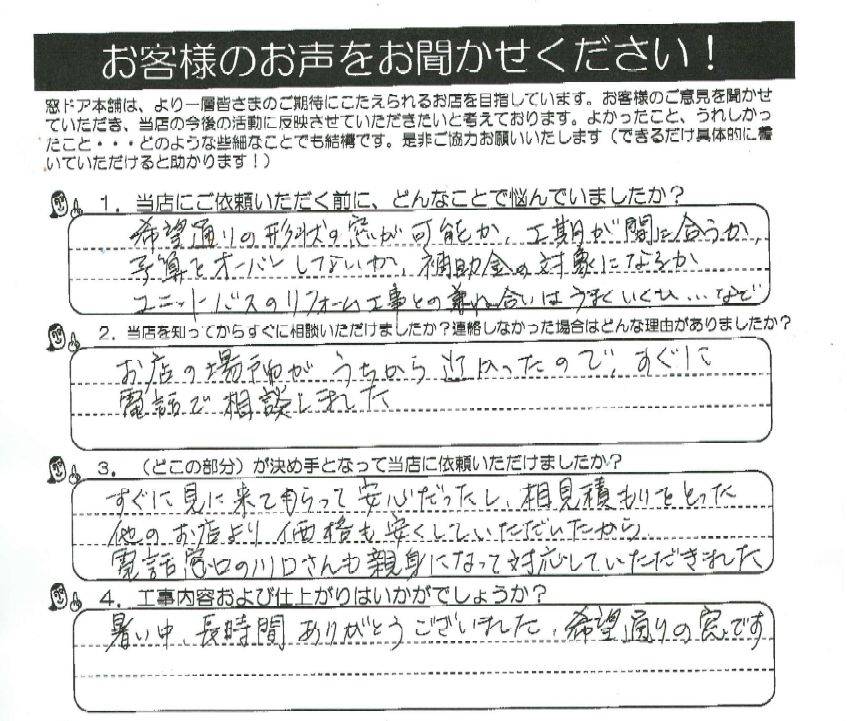 お客様のお声をお聞かせください！
窓ドア本舗は、より一層皆さまのご期待にこたえられるお店を目指しています。お客様のご意見を聞かせ
ていただき、当店の今後の活動に反映させていただきたいと考えております。よかったこと、うれしかっ
たこと・・・どのような些細なことでも結構です。是非ご協力お願いいたします（できるだけ具体的に書
いていただけると助かります！）
1．当店にご依頼いただく前に、どんなことで悩んでいましたか？
希望通りの形状の窓が可能か、工期が間に合うか、
予算をオーバーしないか、補助金の対象になるか
ユニットバスのリフォーム工事との兼ね合いはうまくいくか…など
2．当店を知ってからすぐに相談いただけましたか？連絡しなかった場合はどんな理由がありましたか？
お店の場所がうちから近かったので、すぐに
電話で相談しました
3．（どこの部分）が決め手となって当店に依頼いただけましたか？
すぐに見に来てもらって安心だったし、相見積もりをとった
他のお店より価格も安くしていただいたから
電話窓口の川口さんも親身になって対応していただきました
4．工事内容および仕上がりはいかがでしょうか？
暑い中、長時間ありがとうございました、希望通りの窓です